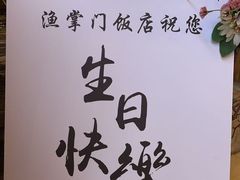 渔掌门饭店祝您
生日
快樂